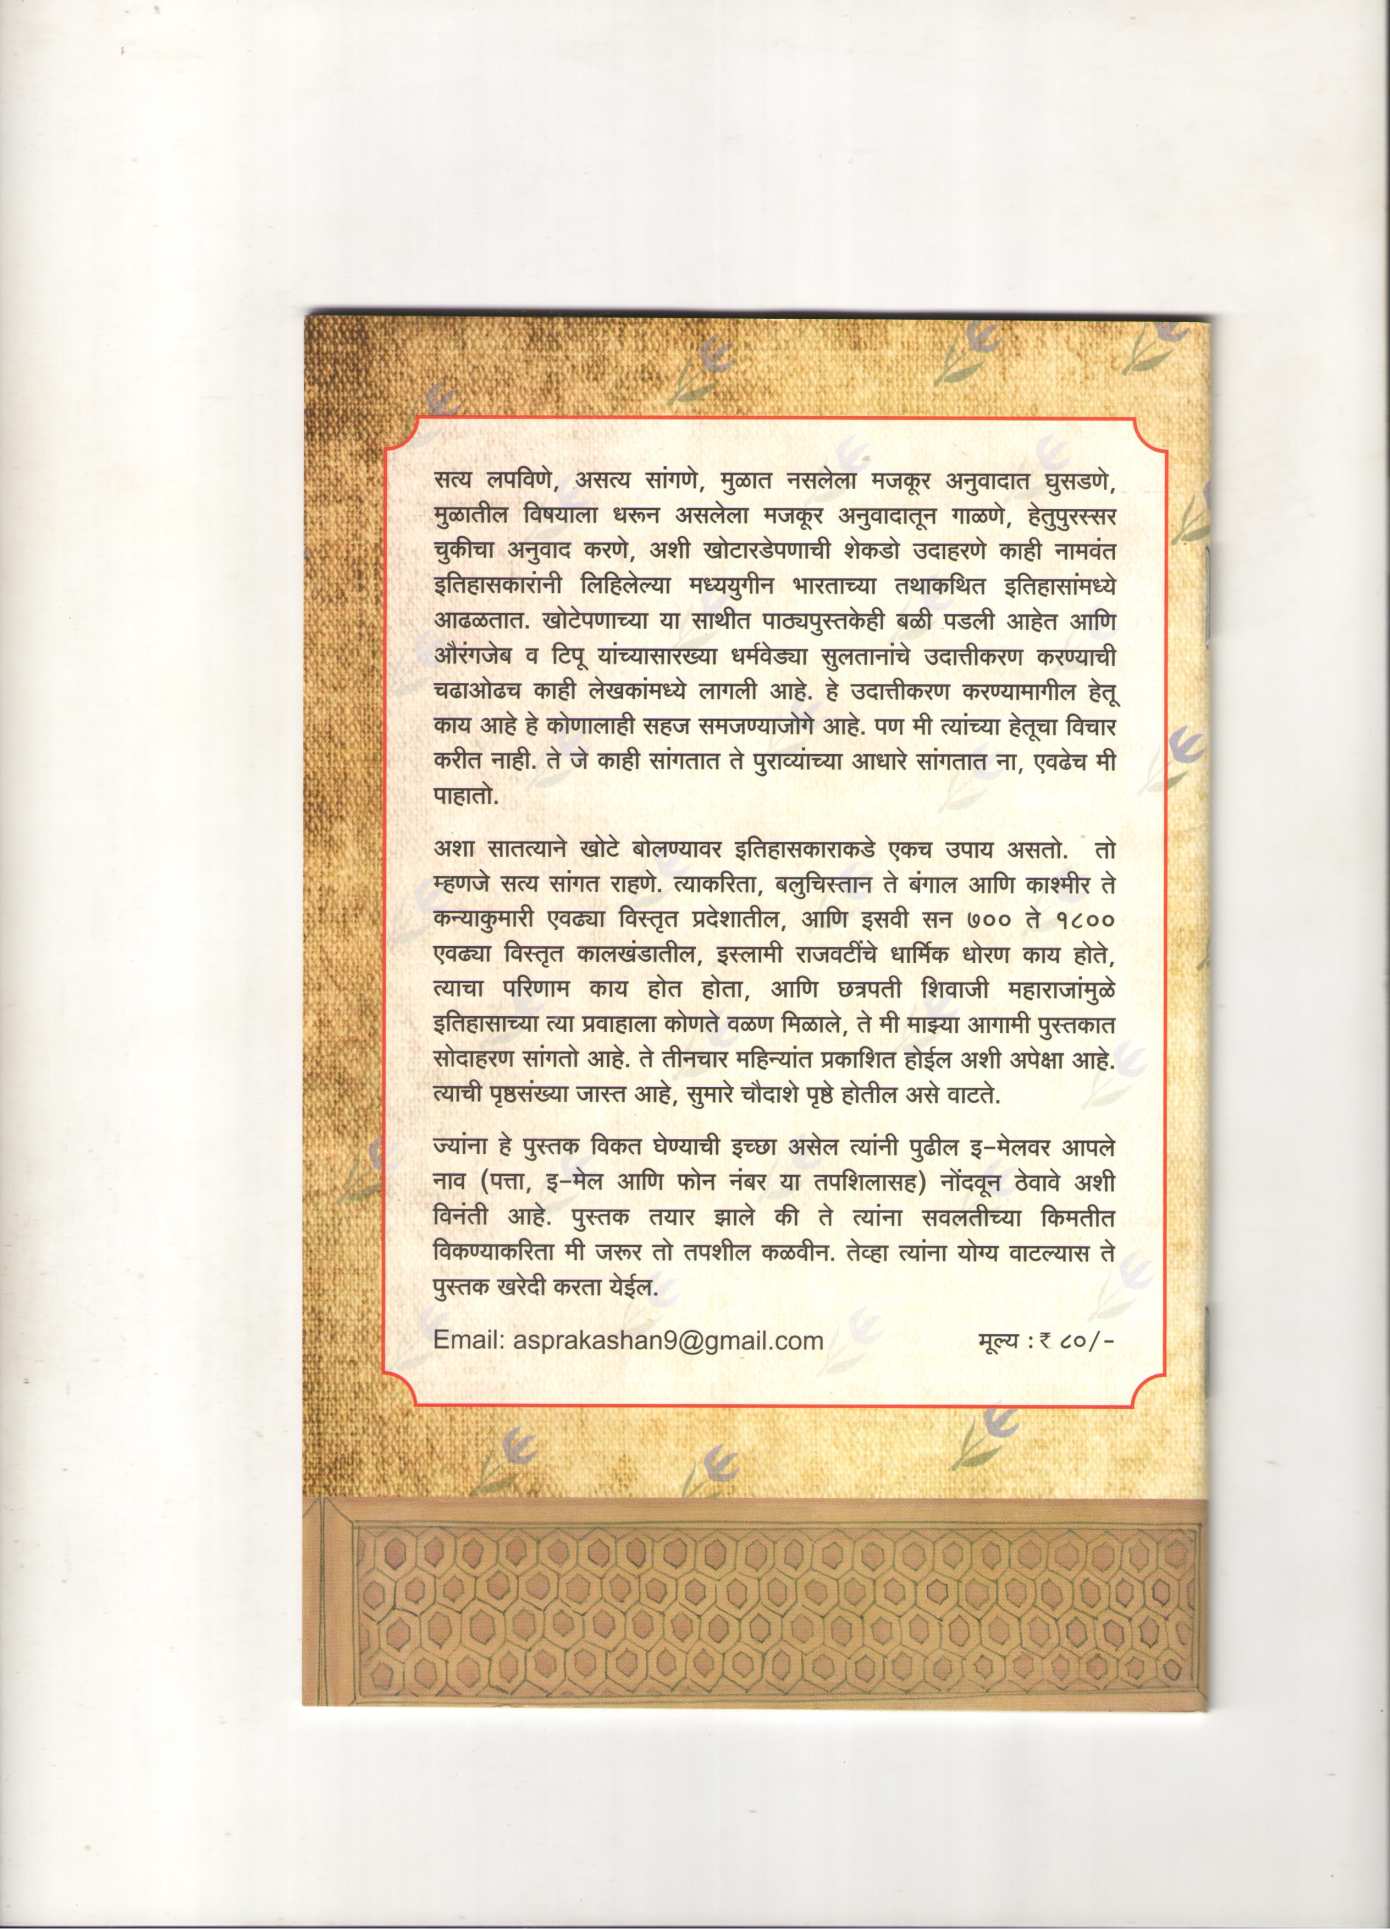 सत्य लपविणे, असत्य सांगणे, मुळात नसलेला मजकूर अनुवादात घुसडणे,
मुळातील विषयाला धरून असलेला मजकूर अनुवादातून गाळणे, हेतुपुरस्सर
चुकीचा अनुवाद करणे, अशी खोटारडेपणाची शेकडो उदाहरणे काही नामवंत
इतिहासकारांनी लिहिलेल्या मध्ययुगीन भारताच्या तथाकथित इतिहासांमध्ये
आढळतात. खोटेपणाच्या या साथीत पाठ्यपुस्तकेही बळी पडली आहेत आणि
औरंगजेब व टिपू यांच्यासारख्या धर्मवेड्या सुलतानांचे उदात्तीकरण करण्याची
चढाओढच काही लेखकांमध्ये लागली आहे. हे उदात्तीकरण करण्यामागील हेतू
काय आहे हे कोणालाही सहज समजण्याजोगे आहे. पण मी त्यांच्या हेतूचा विचार
करीत नाही. ते जे काही सांगतात ते पुराव्यांच्या आधारे सांगतात ना, एवढेच मी
पाहातो.
अशा सातत्याने खोटे बोलण्यावर इतिहासकाराकडे एकच उपाय असतो. तो
म्हणजे सत्य सांगत राहणे. त्याकरिता, बलुचिस्तान ते बंगाल आणि काश्मीर ते
कन्याकुमारी एवढ्या विस्तृत प्रदेशातील, आणि इसवी सन ७०० ते १८००
एवढ्या विस्तृत कालखंडातील, इस्लामी राजवटींचे धार्मिक धोरण काय होते,
त्याचा परिणाम काय होत होता, आणि छत्रपती शिवाजी महाराजांमुळे
इतिहासाच्या त्या प्रवाहाला कोणते वळण मिळाले, ते मी माझ्या आगामी पुस्तकात
सोदाहरण सांगतो आहे. ते तीनचार महिन्यांत प्रकाशित होईल अशी अपेक्षा आहे.
त्याची पृष्ठसंख्या जास्त आहे, सुमारे चौदाशे पृष्ठे होतील असे वाटते.
ज्यांना हे पुस्तक विकत घेण्याची इच्छा असेल त्यांनी पुढील इ-मेलवर आपले
नाव (पत्ता, इ-मेल आणि फोन नंबर या तपशिलासह) नोंदवून ठेवावे अशी
विनंती आहे. पुस्तक तयार झाले की ते त्यांना सवलतीच्या किमतीत
विकण्याकरिता मी जरूर तो तपशील कळवीन. तेव्हा त्यांना योग्य वाटल्यास ते
पुस्तक खरेदी करता येईल.
Email: asprakashan9@gmail.com मूल्य : ₹ ८०/-